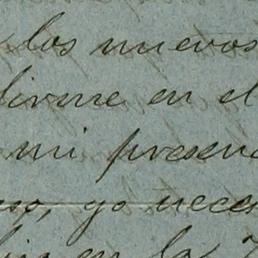 los nuevos
dirme en el
mi presenc
eso, yo neces
en la